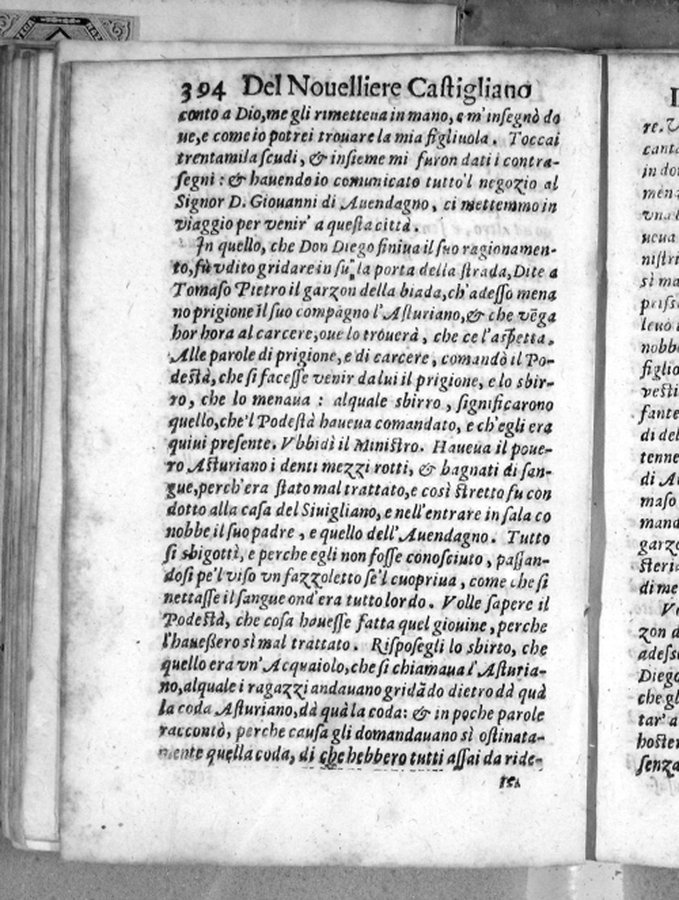 394 Del Nouelliere Castigliano
conto a Dio, me gli rimetteua in mano, e m'insegnò do
ue, e come io potrei trouare la mia figliuola. Toccai
trentamila scudi, & insieme mi furon dati i contra-
segni: & hauendo io comunicato tutto'l negozio al
Signor D. Giouanni di Auendagno, ci mettemmo in
viaggio per venir' a questa città.
In quello, che Don Diego finiua il suo ragionamen-
to, fù vdito gridare in su la porta della strada, Dite a
Tomaso Pietro il garzon della biada, ch'adesso mena
no prigione il suo compagno l'Asturiano, & che vēga
hor hora al carcere, oue lo trouerà, che ce l'aspetta.
Alle parole di prigione, e di carcere, comandò il Po-
destà, che si facesse venir da lui il prigione, e lo sbir-
ro, che lo menaua: alquale sbirro, significarono
quello, che'l Podestà haueua comandato, e ch'egli era
quiui presente. Vbbidì il Ministro. Haueua il poue-
ro Asturiano i denti mezzi rotti, & bagnati di san-
gue, perch'era stato mal trattato, e così stretto fu con
dotto alla casa del Siuigliano, e nell'entrare in sala co
nobbe il suo padre, e quello dell'Auendagno. Tutto
si sbigottì, e perche egli non fosse conosciuto, passan-
dosi pe'l viso vn fazzoletto se'l cuopriua, come che si
nettasse il sangue ond'era tutto lordo. Volle sapere il
Podestà, che cosa hauesse fatta quel giouine, perche
l'hauessero sì mal trattato. Risposegli lo sbirto, che
quello era vn'Acquaiolo, che si chiamaua l'Asturia-
no, alquale i ragazzi andauano gridādo dietro dà quà
la coda Asturiano, dà quà la coda: & in poche parole
raccontò, perche causa gli domandauano sì ostinata-
mente quella coda, di che hebbero tutti assai da ride-
re. V
canta
in do
mena
vna l
neua
nistri
sì ma
leuò i
nobbe
figlio
vesti
fante
di del
tenne
di A
maso
mand
garzo
steria
di me
V
zon d
adess
Diego
che gl
tar' a
hoster
senza